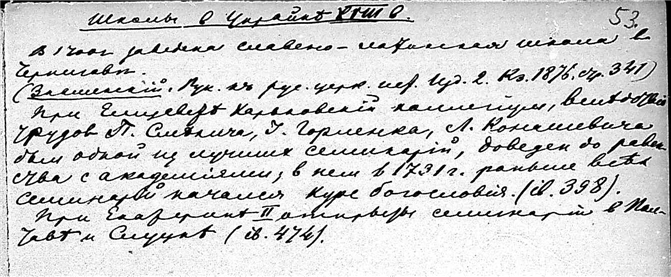 Школы в Украйнѣ XVIII в.
53.
В 1700г заведена славено-латинская школа в
Черниговѣ.
(Знаменскій. Рук. къ рус. церк. ист. Изд. 2. Кз. 1876. стр. 341)
При Елизаветѣ Харьковскій коллегіум,
трудов П. Г. Горленка, Л. Конашевича
был одной из лучших семинарій, доведен до равен-
ства с академіями; в нем в 1731г. раньше всѣх
семинарій начался курс богословія. (ib. 398).
При Екатеринѣ II открыты семинаріи в Пол-
тавѣ и Слуцкѣ (ib. 474).